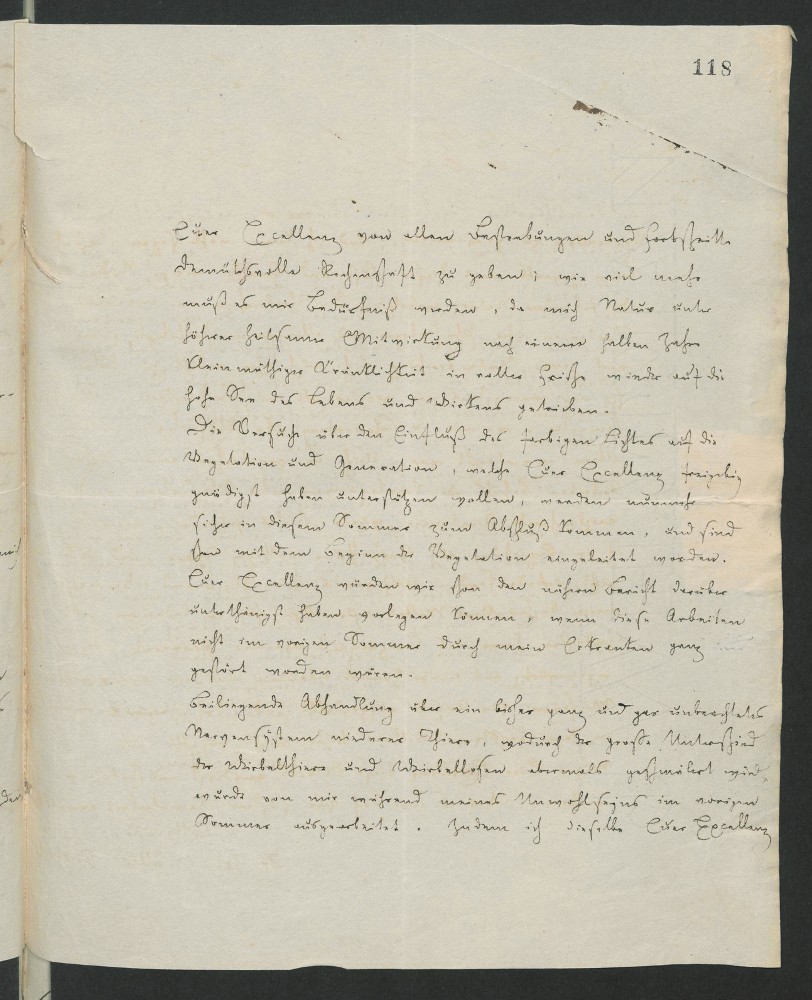 118
Euer Excellenz von allen Bestrebungen und Fortschritte
demuthsvolle Rechenschaft zu geben; wie viel mehr
muß es mir Bedürfniß werden, da mich Natur unter
höherer heilsamer Mitwirkung nach einem halben Jahr
kleinmüthiger Kränklichkeit in voller Frische wieder auf die
hohe See des Lebens und Wirkens getrieben.
Die Versuche über den Einfluß des farbigen Lichtes auf die
Vegetation und Generation, welche Euer Excellenz
gnädigst haben unterstützen wollen, werden nunmehr
sicher in diesem Sommer zum Abschluß kommen, und sind
schon mit dem Beginn der Vegetation eingeleitet worden.
Euer Excellenz würden wir schon den nähern Bericht darüber
unterthänigst haben vorlegen können, wenn diese Arbeiten
nicht im vorigen Sommer durch mein Erkranken ganz
gestört worden wären.
Beiliegende Abhandlung über ein bisher ganz und gar unbeachtetes
Nervensystem niederer Thiere, wodurch der große Unterschied
der Wirbelthiere und Wirbellosen abermals geschmälert wird,
wurde von mir während meines Unwohlseyns im vorigen
Sommer ausgearbeitet. Indem ich dieselbe Euer Excellenz